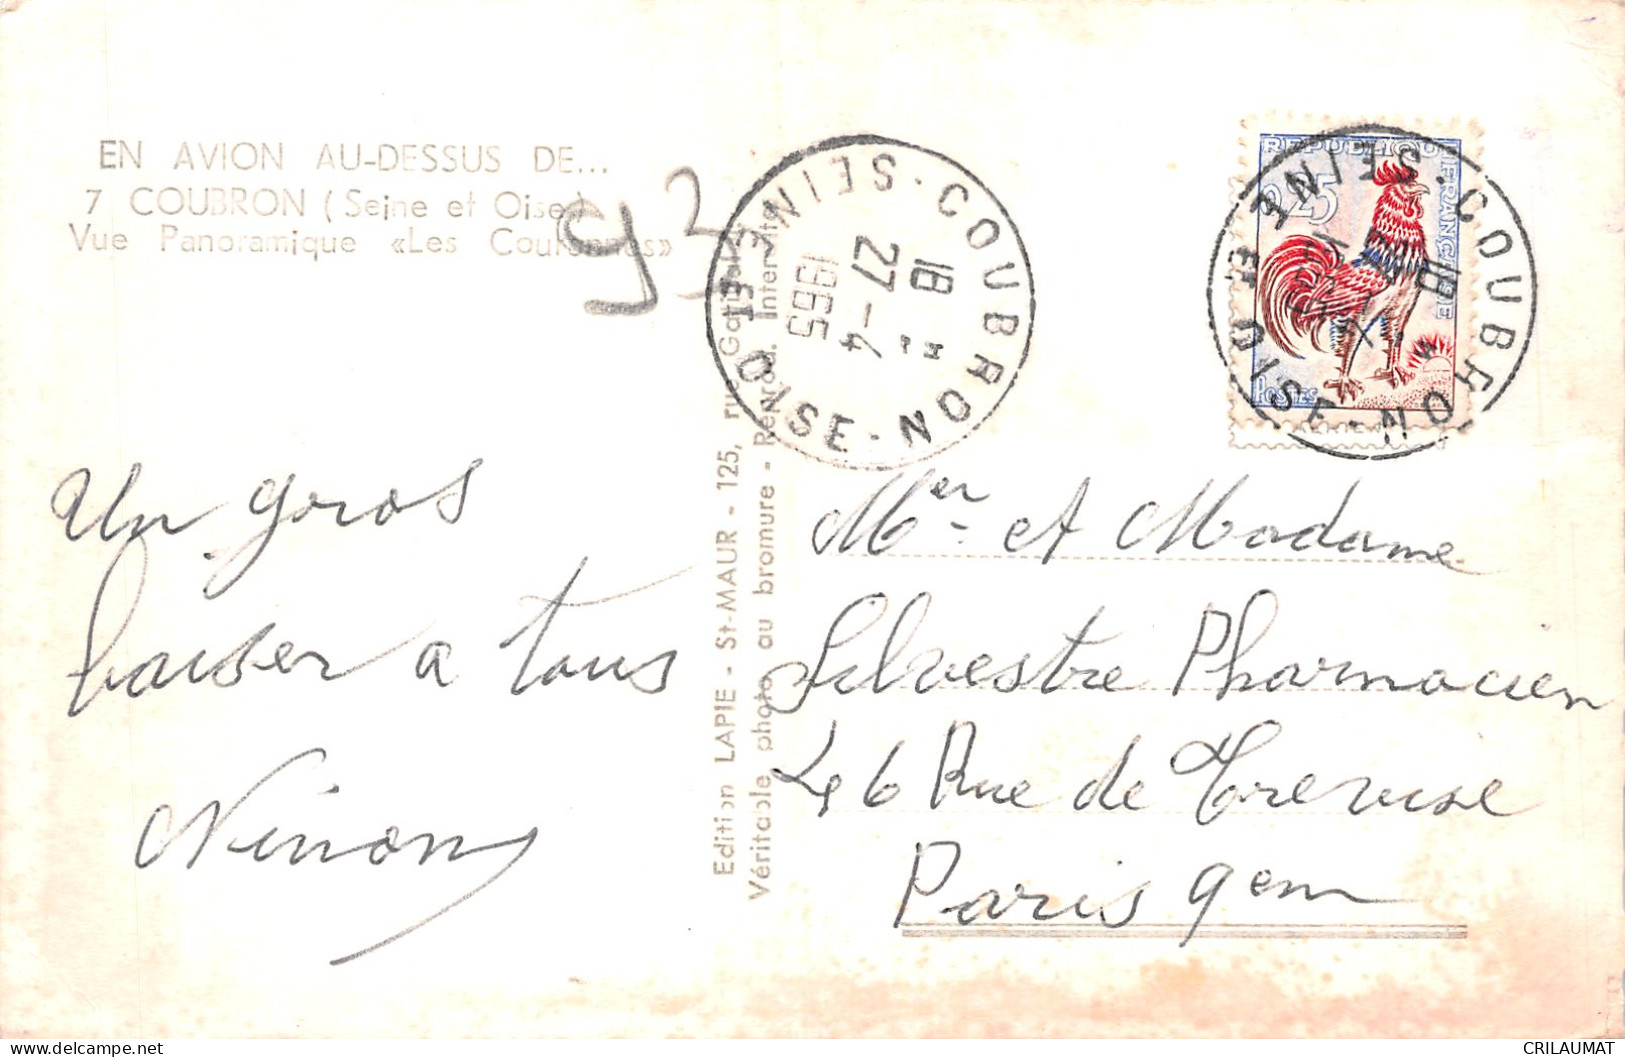 EN AVION AU-DESSUS DE...
7 COUBRON (Seine et Oise)
Vue Panoramique «Les
93
Un gros
baiser a tous
Ninon
Edition LAPIE - St-MAUR - 125, rue
Véritable photo au bromure - Reprod. Interdite
COUBRON
SEINE ET OISE
18 H
27-4
1965
REPUBLIQUE FRANÇAISE
0,25
POSTES
COUBRON
SEINE ET OISE
18 H
Mer et Madame
Silvestre Pharmacien
46 Rue de Trevise
Paris 9em
CRILAUMAT